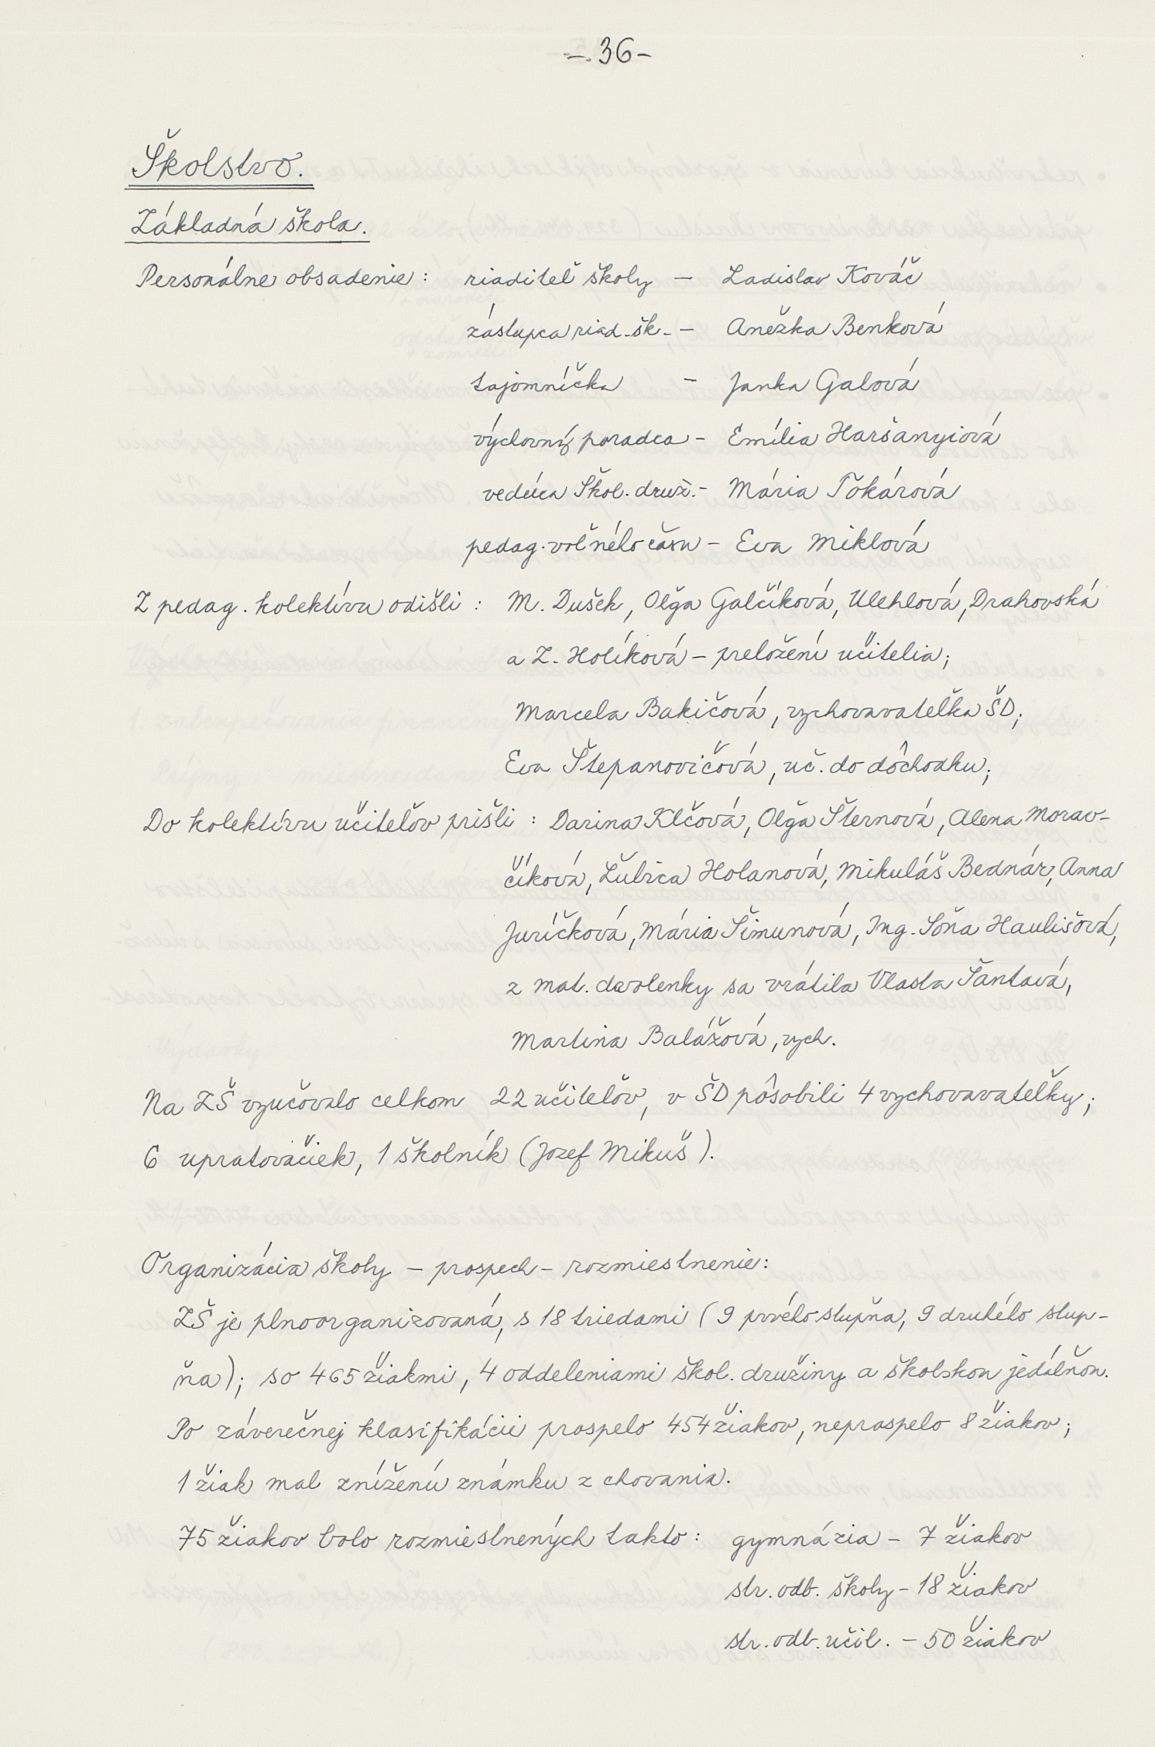 - 36 -
Školstvo.
Základná škola.
Personálne obsadenie: riaditeľ školy - Ladislav Kováč
zástupca riad. šk. - Anežka Benková
tajomníčka - Janka Galová
výchovný poradca - Emília Haršanyiová
vedúca Škol. druž. - Mária Tokárová
pedag. voľného času - Eva Miklová
Z pedag. kolektívu odišli: M. Dušek, Oľga Galčíková, Ulehlová, Drahovská
a Z. Holíková - preložení učitelia;
Marcela Bakičová, vychovavateľka ŠD;
Eva Štepanovičová, uč. do dôchodku;
Do kolektívu učiteľov prišli: Darina Klčová, Oľga Šternová, Alena Morav-
číková, Ľubica Holanová, Mikuláš Bednár, Anna
Juríčková, Mária Šimunová, Ing. Soňa Haulišová,
z mat. dovolenky sa vrátila Vlasta Šantavá,
Martina Balážová, vych.
Na ZŠ vyučovalo celkom 22 učiteľov, v ŠD pôsobili 4 vychovavateľky;
6 upratovačiek, 1 školník (Jozef Mikuš).
Organizácia školy - prospech - rozmiestnenie:
ZŠ je plnoorganizovaná, s 18 triedami (9 prvého stupňa, 9 druhého stup-
ňa); so 465 žiakmi, 4 oddeleniami škol. družiny a školskou jedálňou.
Po záverečnej klasifikácii prospelo 454 žiakov, neprospelo 8 žiakov;
1 žiak mal zníženú známku z chovania.
75 žiakov bolo rozmiestnených takto: gymnázia - 7 žiakov
str. odb. školy - 18 žiakov
str. odb. učil. - 50 žiakov